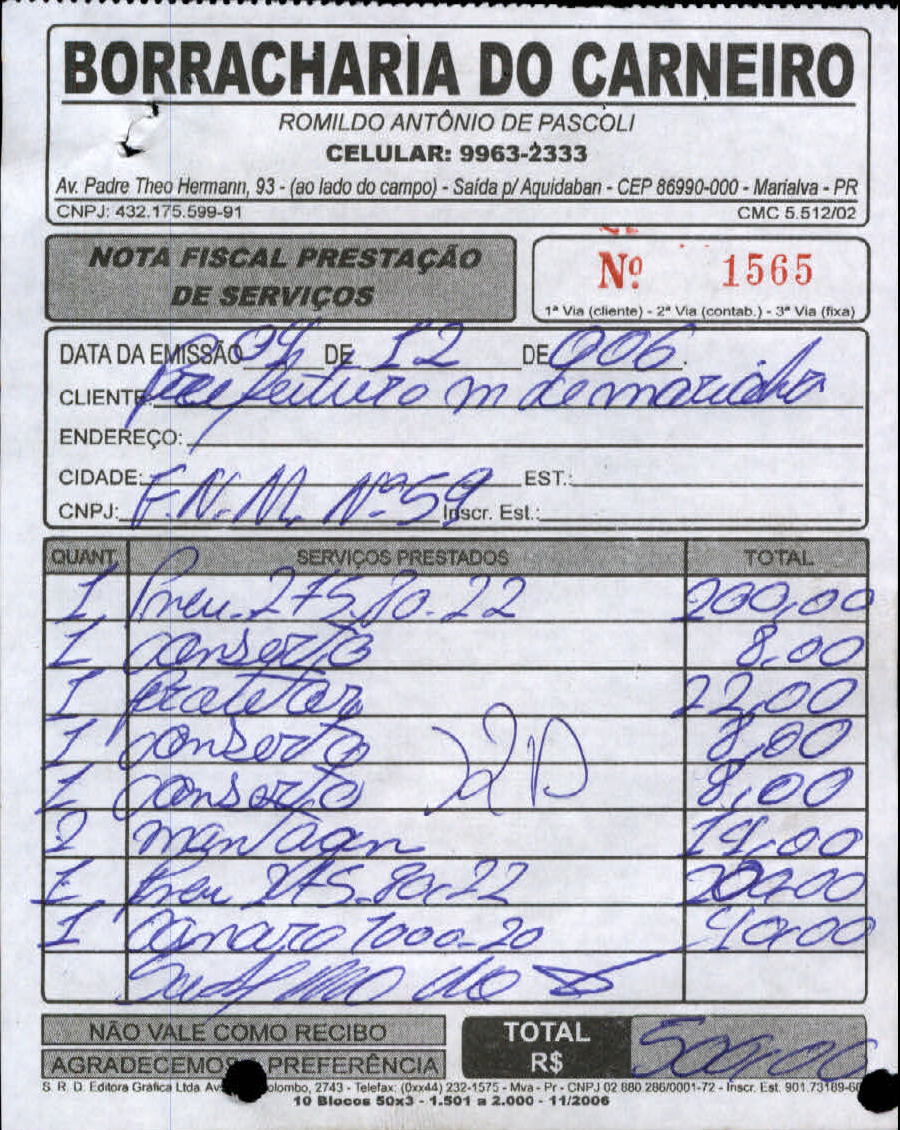 BORRACHARIA DO CARNEIRO
ROMILDO ANTÔNIO DE PASCOLI
CELULAR: 9963-2333
Av. Padre Theo Hermann, 93 - (ao lado do campo) - Saída p/ Aquidaban - CEP 86990-000 - Marialva - PR
CNPJ: 432.175.599-91 CMC 5.512/02
NOTA FISCAL PRESTAÇÃO
DE SERVIÇOS
Nº 1565
1ª Via (cliente) - 2ª Via (contab.) - 3ª Via (fixa)
DATA DA EMISSÃO DE 12 DE 006.
CLIENTE Prefeituro m de
ENDEREÇO:
CIDADE: EST.:
CNPJ: F.N.M. Nº 59 Inscr. Est.:
QUANT. SERVIÇOS PRESTADOS TOTAL
1 Pneu. 275.80.22 200,00
1 conserto 8,00
1 22,00
1 conserto 8,00
1 conserto 8,00
2 montagn 14,00
1 Pneu 275.80.22 200,00
1 camaro 1000-20 40,00
NÃO VALE COMO RECIBO
AGRADECEMOS PREFERÊNCIA
TOTAL
R$ 500,00
S. R. D. Editora Gráfica Ltda. Av. olombo, 2743 - Telefax: (0xx44) 232-1575 - Mva - Pr - CNPJ 02 880 286/0001-72 - Inscr. Est. 901.73189-60
10 Blocos 50x3 - 1.501 a 2.000 - 11/2006